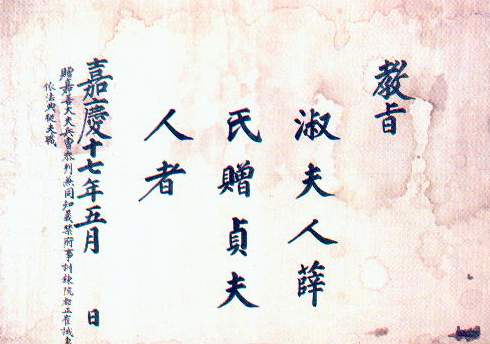 敎旨
淑夫人薛
氏贈貞夫
人者
嘉慶十七年五月 日
贈嘉善大夫兵曹叅判兼同知義禁府事訓鍊院都正崔誠
依法典從夫職